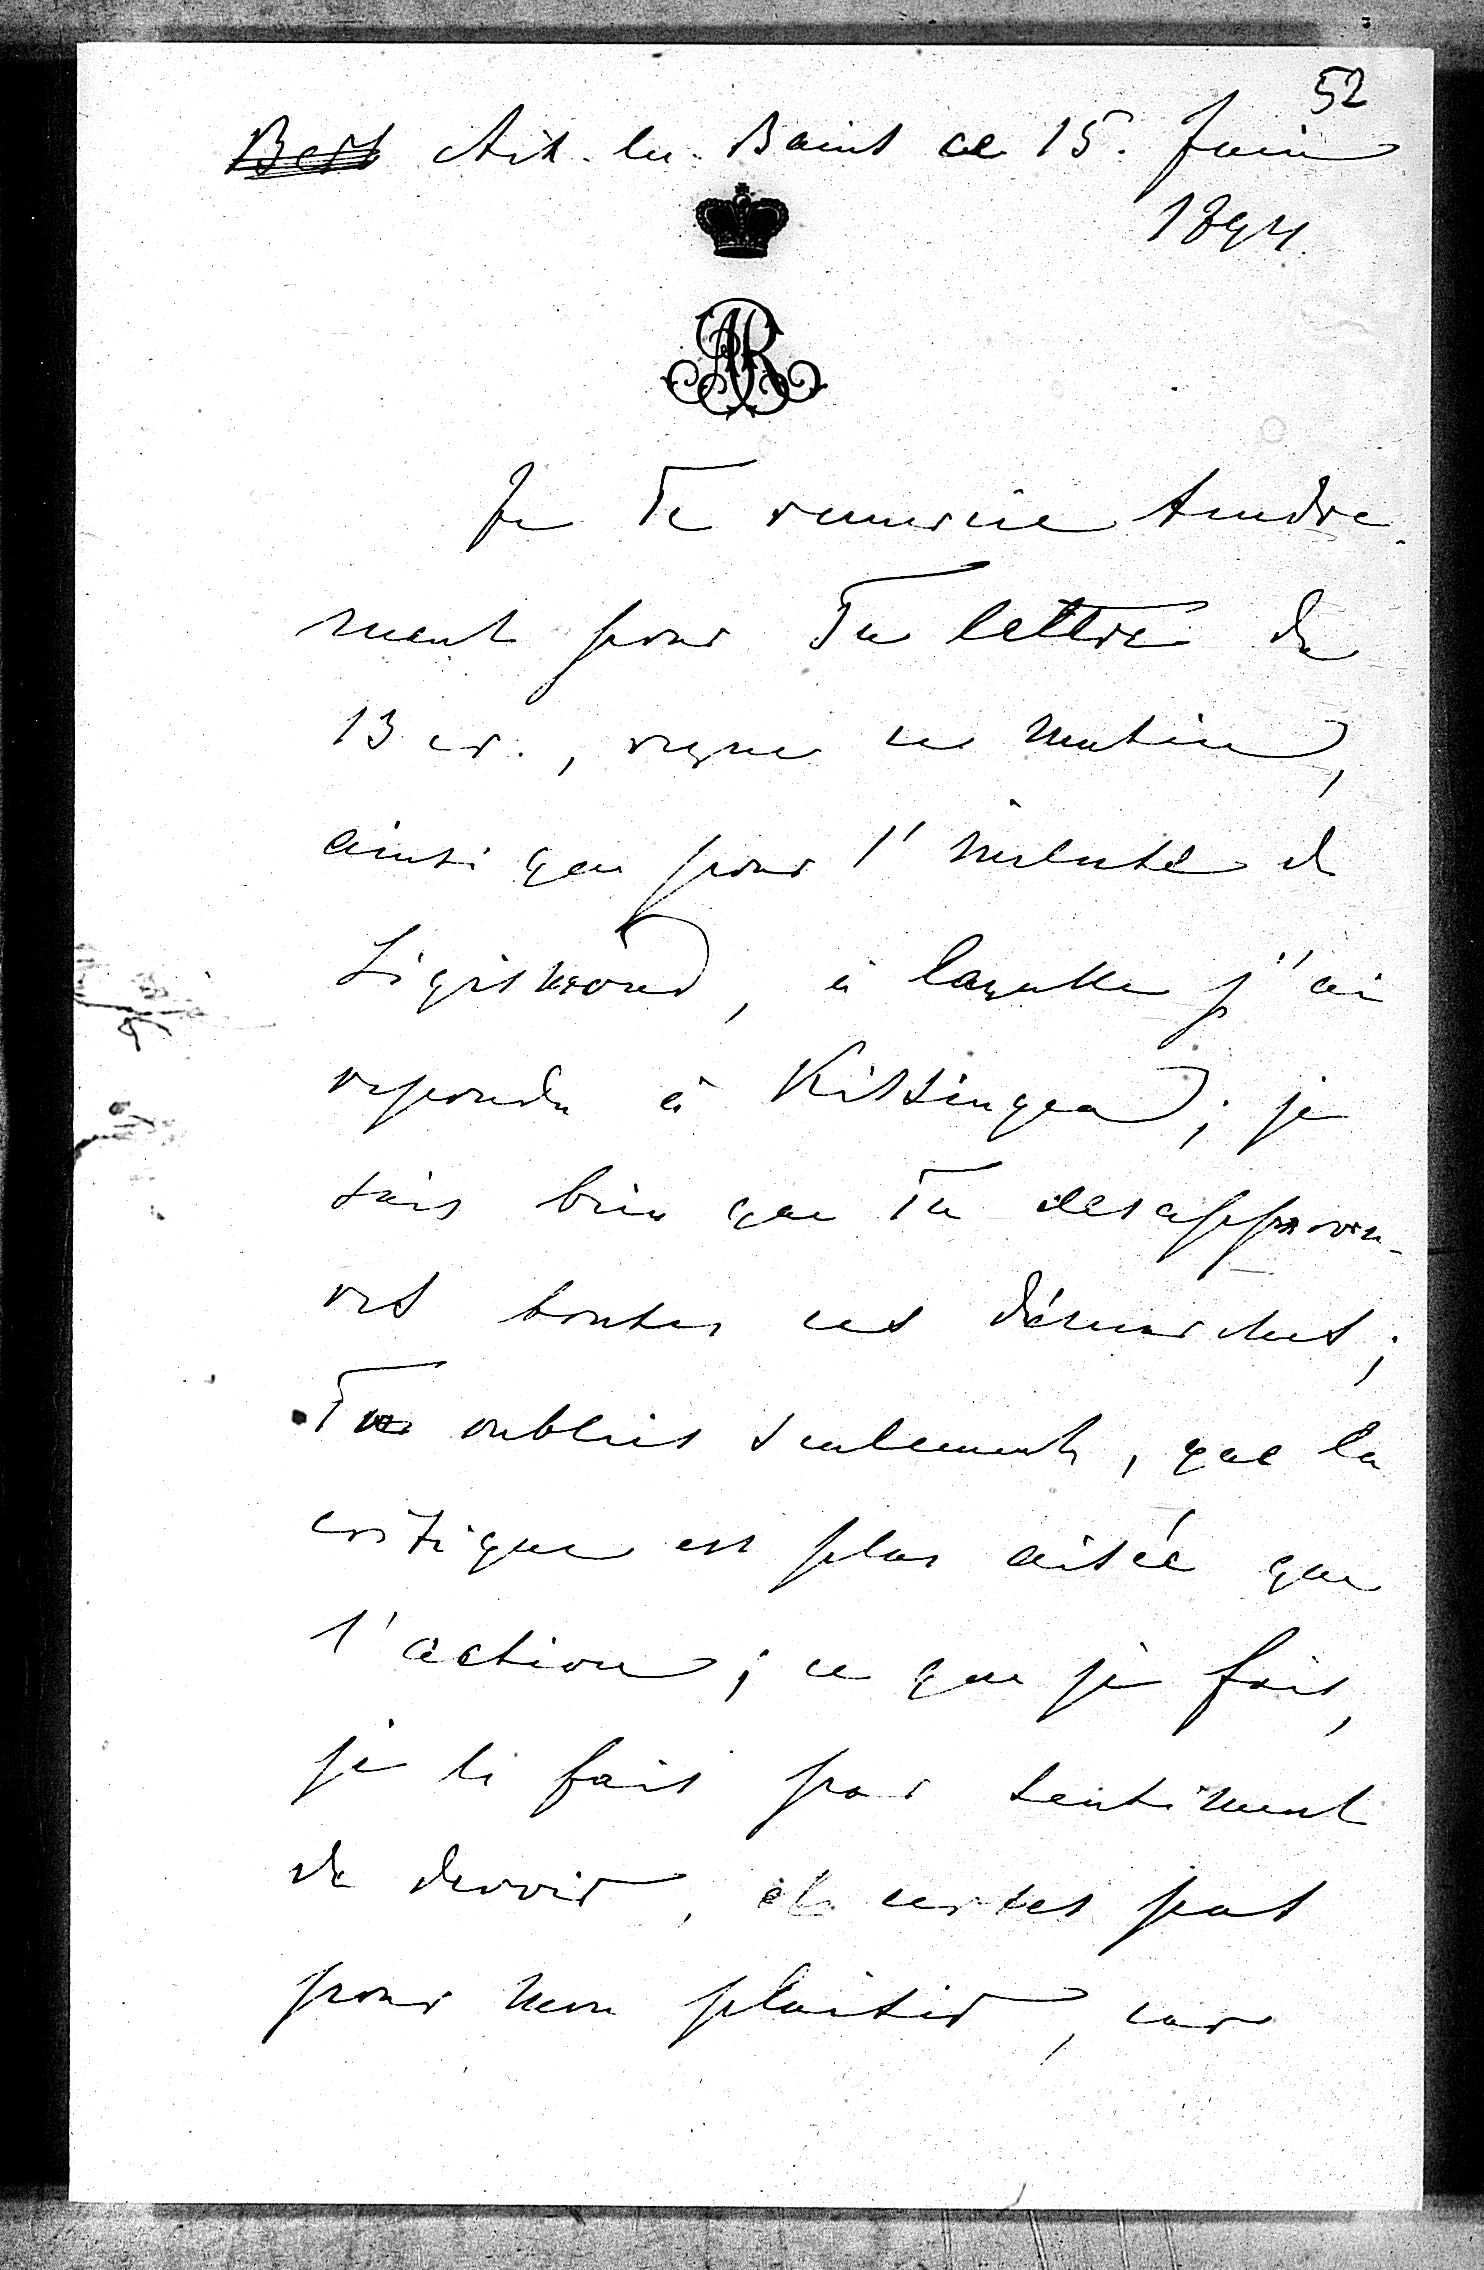 52
Aix-les-Bains ce 15. Juin
1894.
AR
Je Te remercie tendre-
ment pour Ta lettre du
13 cr., reçue ce matin,
ainsi que pour l'incluse de
Sigismond, à laquelle j'ai
repondu à Kissingen; je
sais bien que Tu desapprou-
ves toutes ces démarches;
Tu oublies seulement, que la
critique est plus aisée que
l'action; ce que je fais,
je le fais par sentiment
de devoir, et certes pas
pour mon plaisir, car